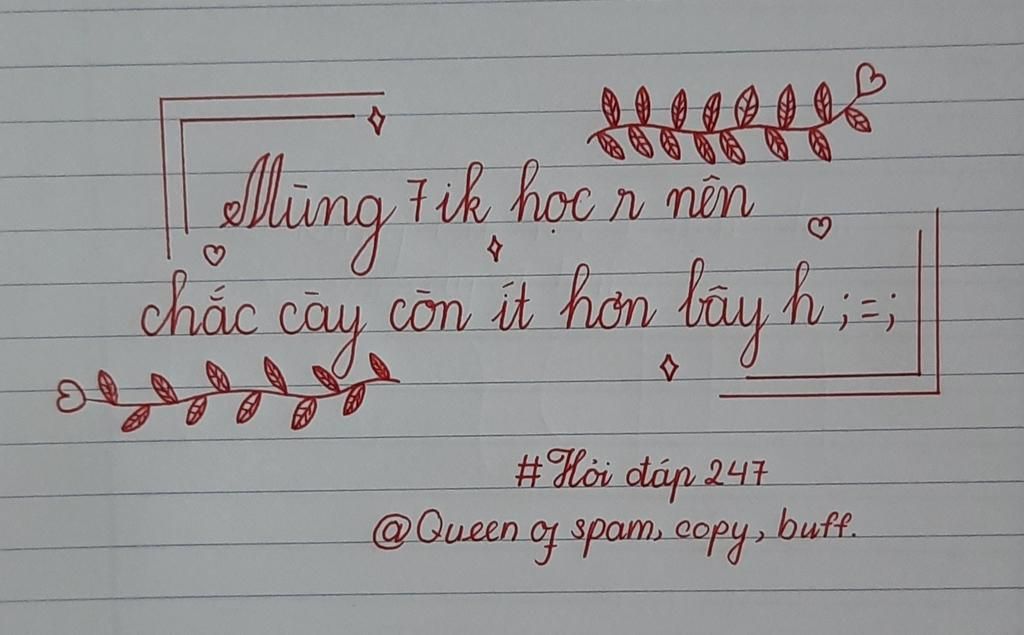 Mùng 7 ik học r nên
chắc cày còn ít hơn bây h ;=;
#Hỏi đáp 247
@Queen of spam, copy, buff.